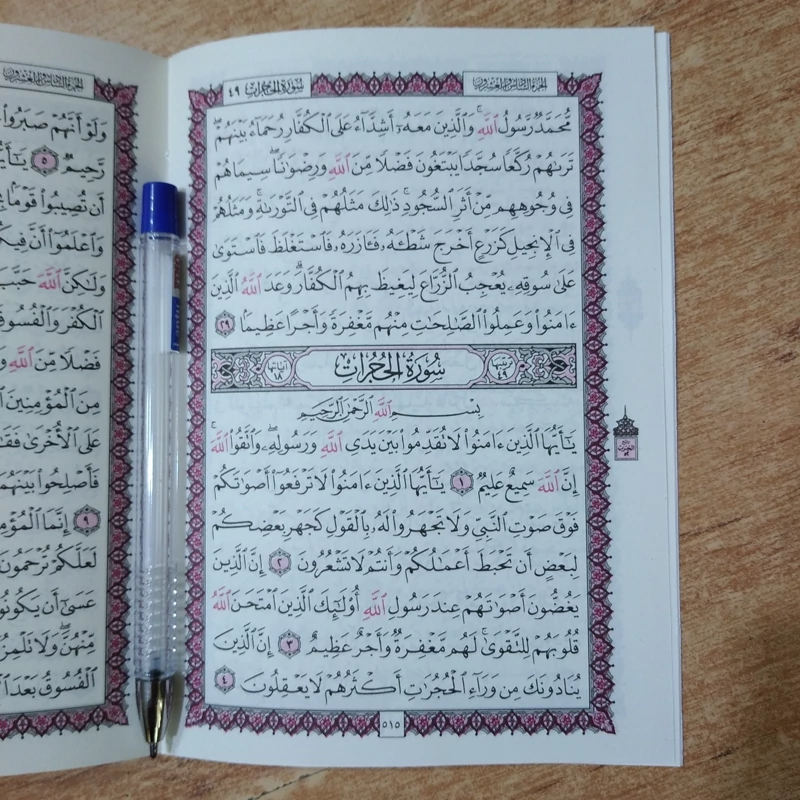 سُورَةُ الحُجُرَاتِ ٤٩
الجزء السادس والعشرون
مُّحَمَّدٌ رَّسُولُ ٱللَّهِ ۚ وَٱلَّذِينَ مَعَهُۥٓ أَشِدَّآءُ عَلَى ٱلْكُفَّارِ رُحَمَآءُ بَيْنَهُمْ ۖ
تَرَىٰهُمْ رُكَّعًا سُجَّدًا يَبْتَغُونَ فَضْلًا مِّنَ ٱللَّهِ وَرِضْوَٰنًا ۖ سِيمَاهُمْ
فِى وُجُوهِهِم مِّنْ أَثَرِ ٱلسُّجُودِ ۚ ذَٰلِكَ مَثَلُهُمْ فِى ٱلتَّوْرَىٰةِ ۚ وَمَثَلُهُمْ
فِى ٱلْإِنجِيلِ كَزَرْعٍ أَخْرَجَ شَطْـَٔهُۥ فَـَٔازَرَهُۥ فَٱسْتَغْلَظَ فَٱسْتَوَىٰ
عَلَىٰ سُوقِهِۦ يُعْجِبُ ٱلزُّرَّاعَ لِيَغِيظَ بِهِمُ ٱلْكُفَّارَ ۗ وَعَدَ ٱللَّهُ ٱلَّذِينَ
ءَامَنُوا۟ وَعَمِلُوا۟ ٱلصَّٰلِحَٰتِ مِنْهُم مَّغْفِرَةً وَأَجْرًا عَظِيمًۢا ٢٩
ترتيبها ٤٩ سُورَةُ الحُجُرَاتِ آياتها ١٨
بِسْمِ ٱللَّهِ ٱلرَّحْمَٰنِ ٱلرَّحِيمِ
يَٰٓأَيُّهَا ٱلَّذِينَ ءَامَنُوا۟ لَا تُقَدِّمُوا۟ بَيْنَ يَدَىِ ٱللَّهِ وَرَسُولِهِۦ ۖ وَٱتَّقُوا۟ ٱللَّهَ ۚ
إِنَّ ٱللَّهَ سَمِيعٌ عَلِيمٌ ١ يَٰٓأَيُّهَا ٱلَّذِينَ ءَامَنُوا۟ لَا تَرْفَعُوٓا۟ أَصْوَٰتَكُمْ
فَوْقَ صَوْتِ ٱلنَّبِىِّ وَلَا تَجْهَرُوا۟ لَهُۥ بِٱلْقَوْلِ كَجَهْرِ بَعْضِكُمْ
لِبَعْضٍ أَن تَحْبَطَ أَعْمَٰلُكُمْ وَأَنتُمْ لَا تَشْعُرُونَ ٢ إِنَّ ٱلَّذِينَ
يَغُضُّونَ أَصْوَٰتَهُمْ عِندَ رَسُولِ ٱللَّهِ أُو۟لَٰٓئِكَ ٱلَّذِينَ ٱمْتَحَنَ ٱللَّهُ
قُلُوبَهُمْ لِلتَّقْوَىٰ ۚ لَهُم مَّغْفِرَةٌ وَأَجْرٌ عَظِيمٌ ٣ إِنَّ ٱلَّذِينَ
يُنَادُونَكَ مِن وَرَآءِ ٱلْحُجُرَٰتِ أَكْثَرُهُمْ لَا يَعْقِلُونَ ٤
٥١٥
الجزء السادس والعشرون
وَلَوْ أَنَّهُمْ صَبَرُوا۟
رَّحِيمٌ ٥
أَن تُصِيبُوا۟ قَوْمًۢا
وَٱعْلَمُوٓا۟ أَنَّ
وَلَٰكِنَّ ٱللَّهَ حَبَّبَ
ٱلْكُفْرَ وَٱلْفُسُوقَ
فَضْلًا مِّنَ ٱللَّهِ
مِنَ ٱلْمُؤْمِنِينَ
عَلَى ٱلْأُخْرَىٰ
فَأَصْلِحُوا۟ بَيْنَهُمَا
٩ إِنَّمَا
لَعَلَّكُمْ تُرْحَمُونَ
عَسَىٰٓ أَن يَكُونُوا۟
مِّنْهُنَّ ۖ وَلَا
ٱلْفُسُوقُ بَعْدَ